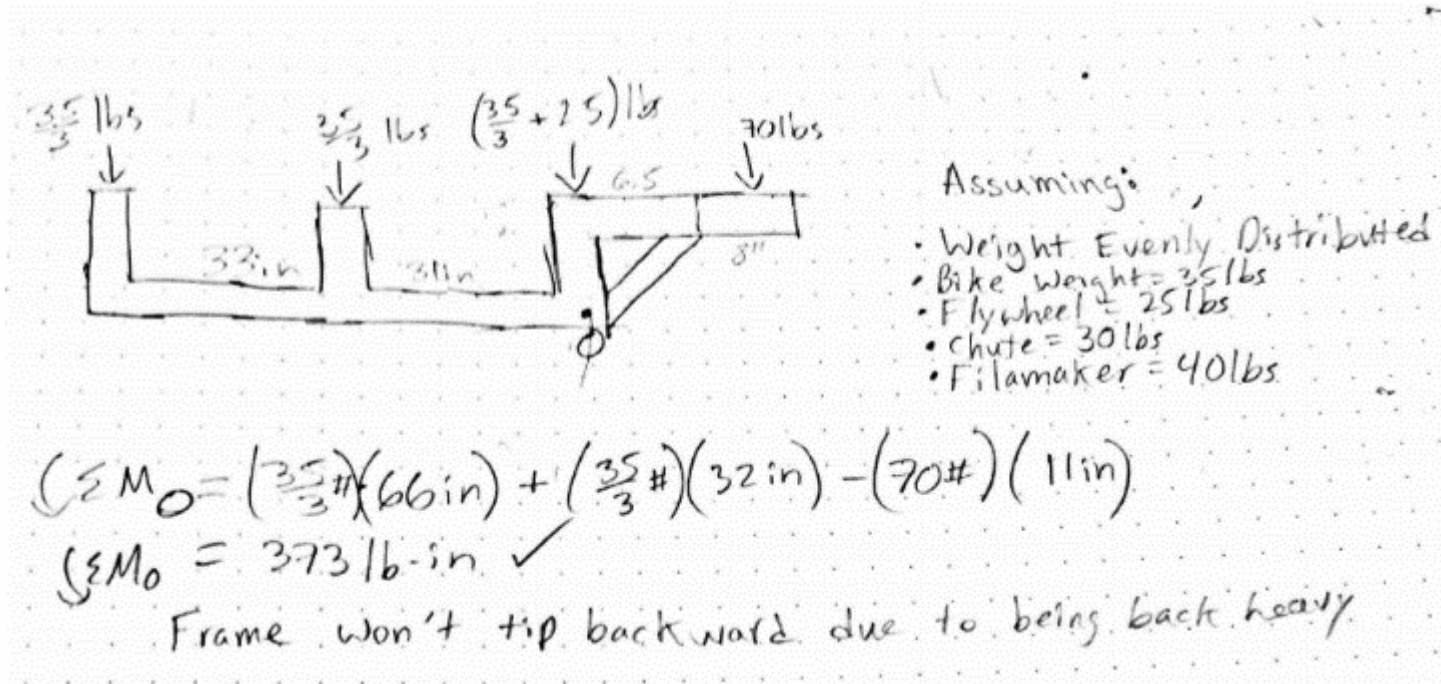 35/3 lbs
35/3 lbs
(35/3 + 25) lbs
70lbs
6.5
33in
31in
8"
O
Assuming:
• Weight Evenly Distributed
• Bike Weight = 35lbs
• Flywheel = 25lbs
• Chute = 30lbs
• Filamaker = 40lbs
ΣM_O = (35/3 #)(66in) + (35/3 #)(32in) - (70#)(11in)
ΣM_O = 373 lb-in ✓
Frame won't tip backward due to being back heavy